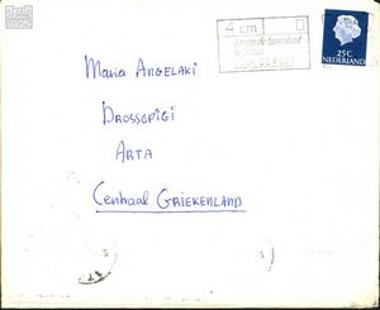 4 cm
25c
NEDERLAND
Maria ANGELAKI
DROSSOPIGI
ARTA
Centraal GRIEKENLAND